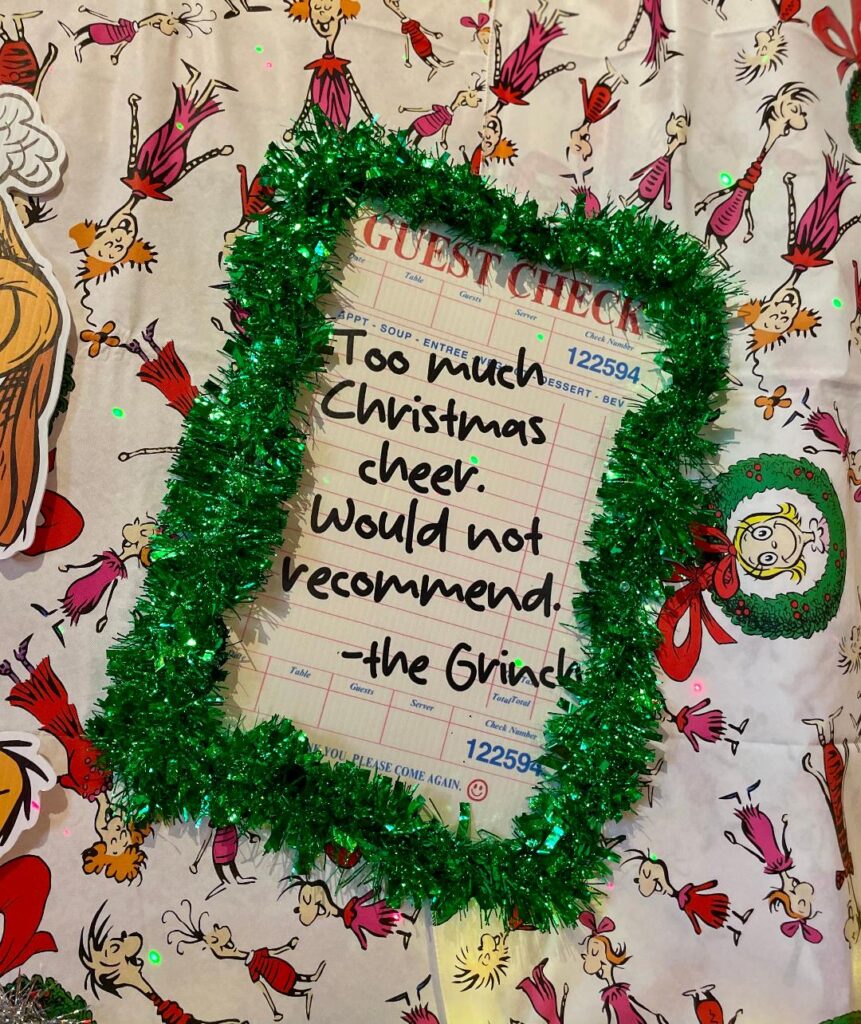 GUEST CHECK
Date Table Guests Server Check Number
122594
APPT - SOUP - ENTREE DESSERT - BEV
Too much
Christmas
cheer.
Would not
recommend.
-the Grinch
Table Guests Server Check Number
TotalTotal
122594
YOU, PLEASE COME AGAIN.